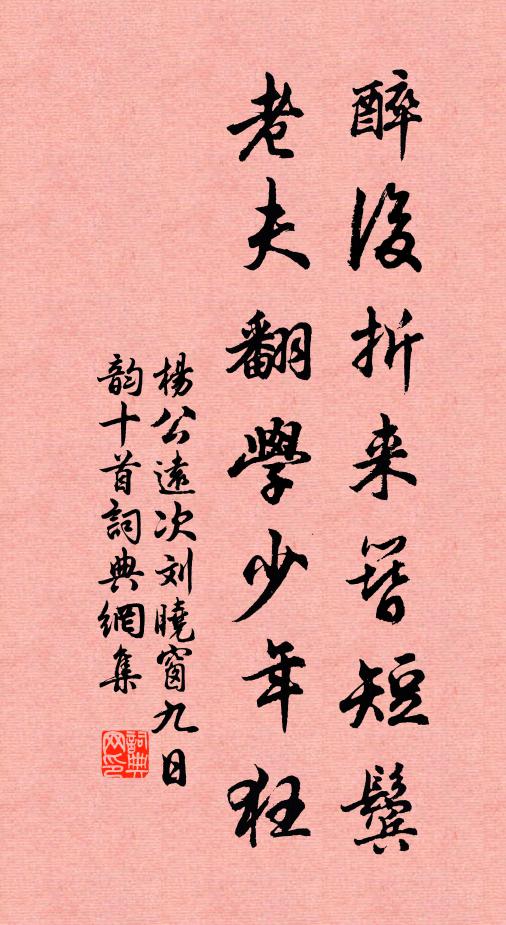 醉後折来簪短鬓
老夫翻學少年狂
楊公遠次刘曉窗九日
韵十首詞典網集
詞典网印